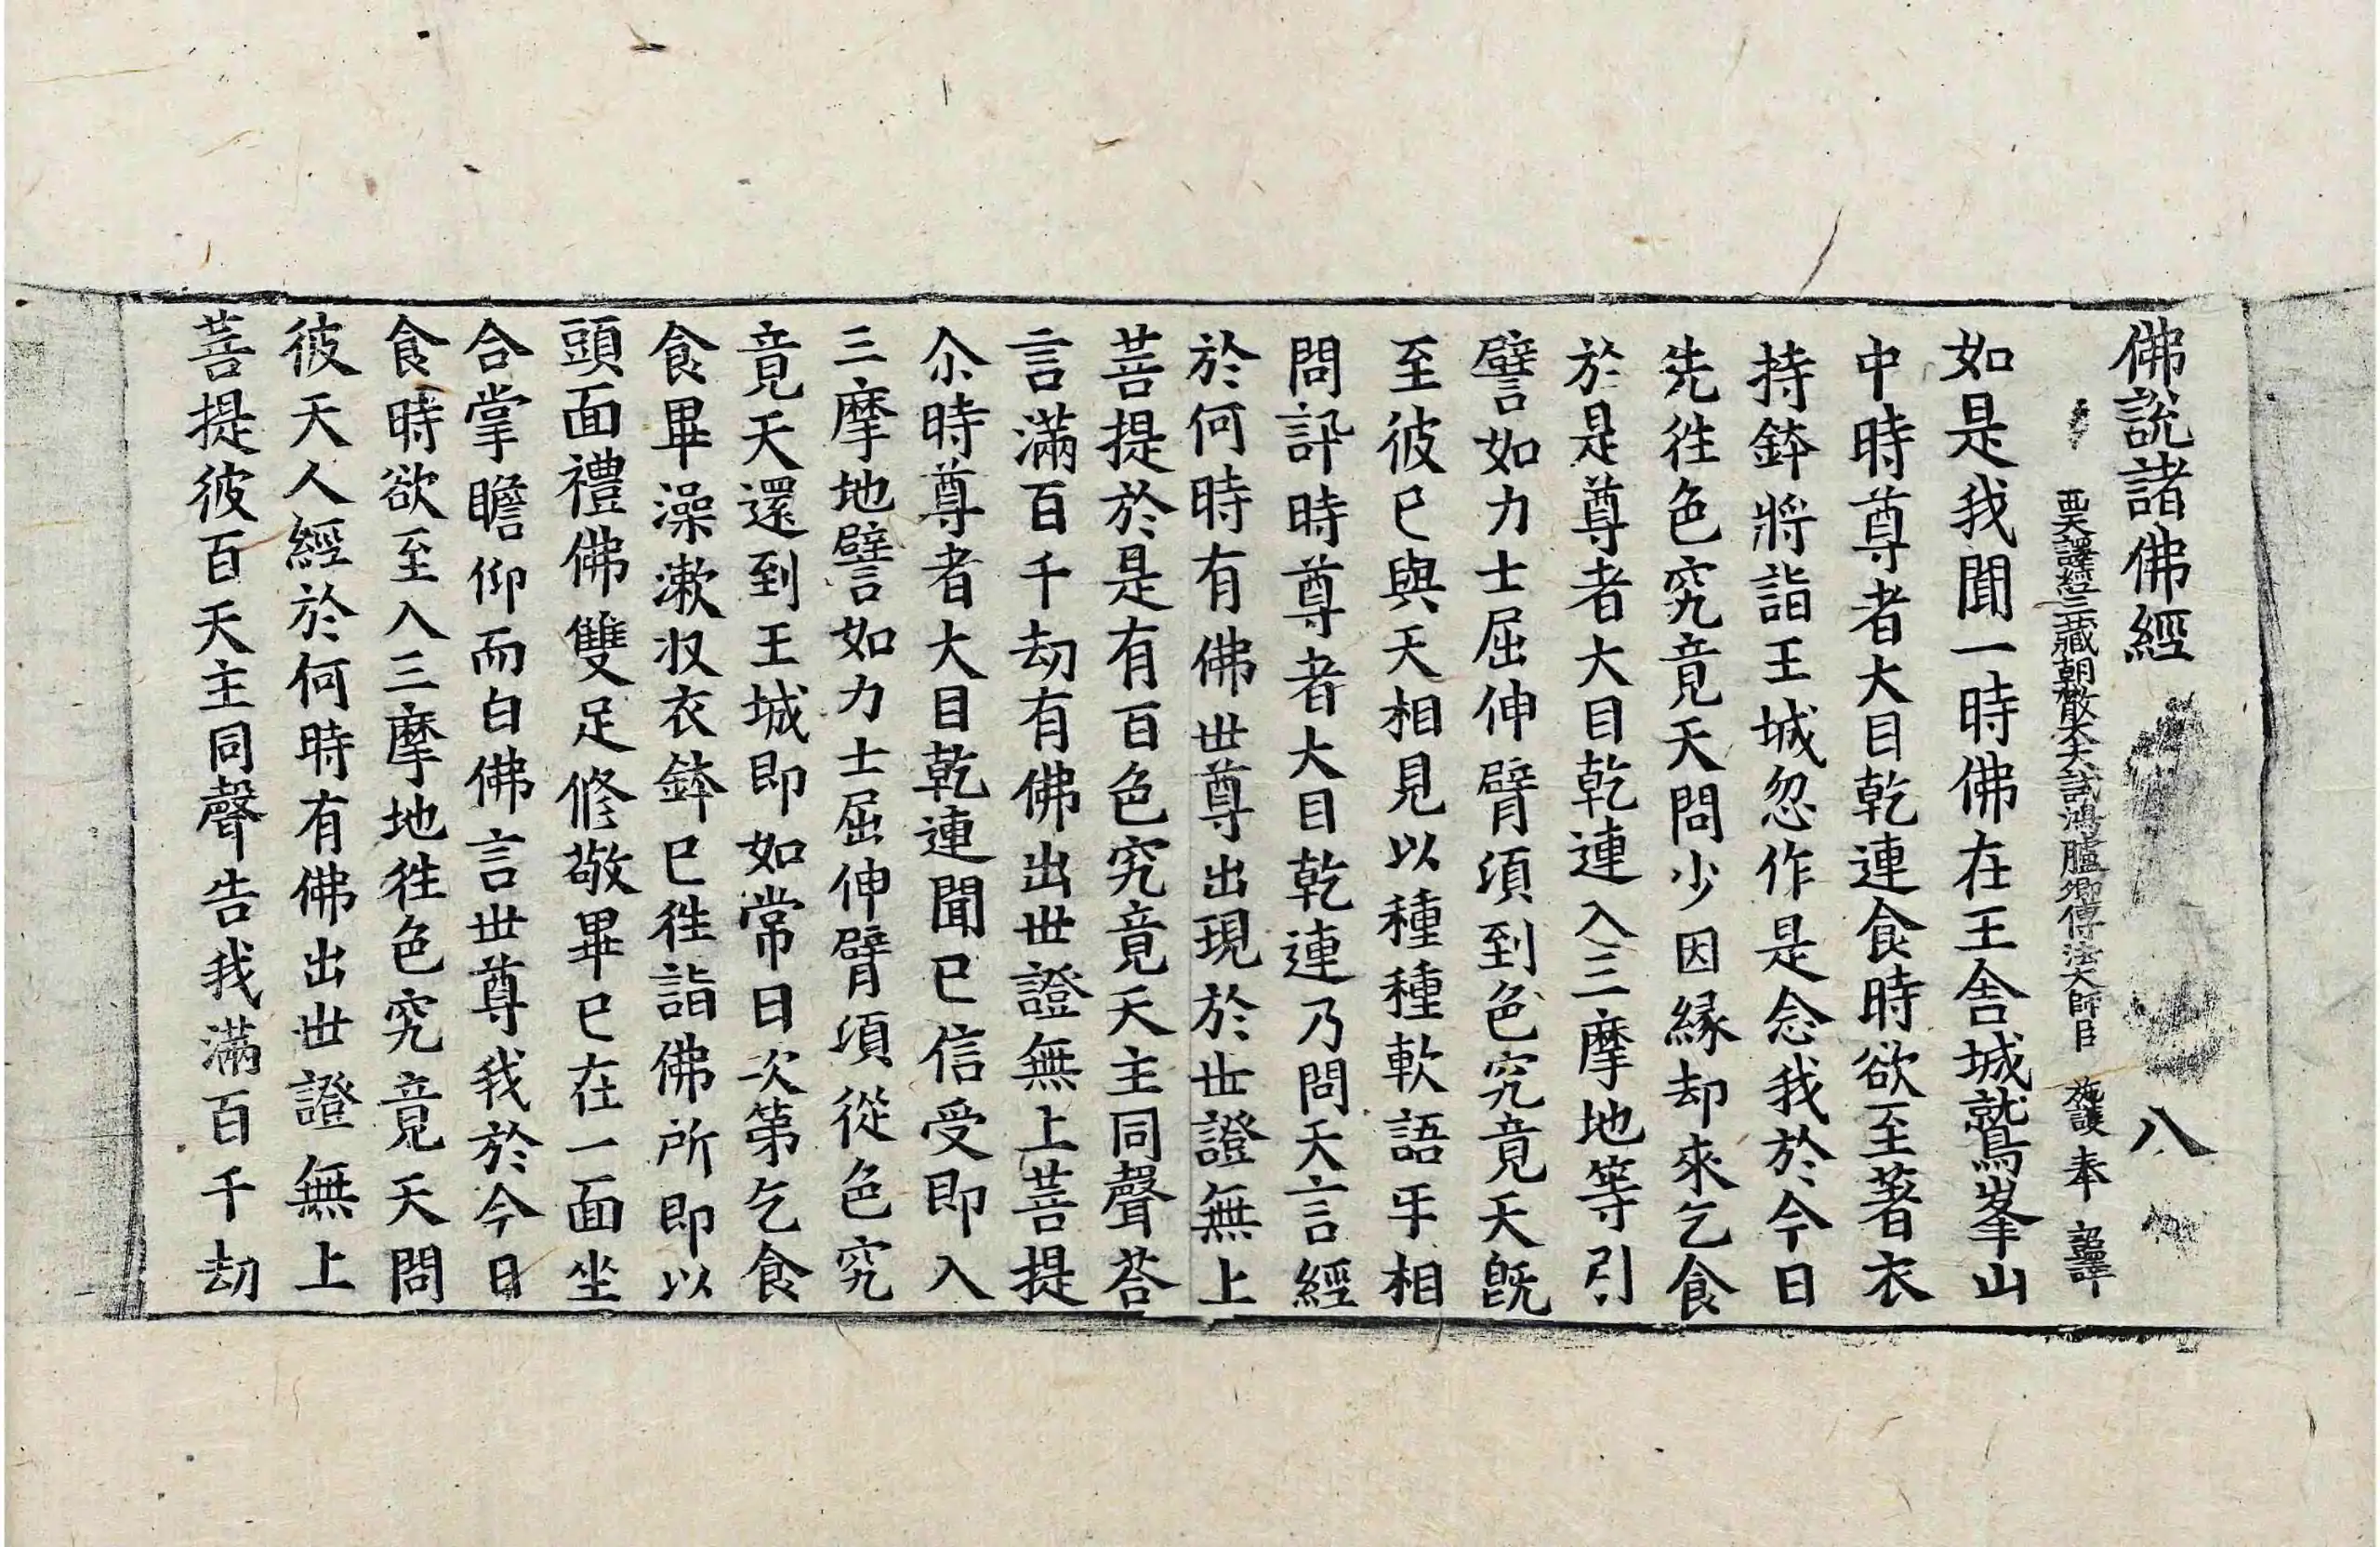 佛說諸佛經 八
西天譯經三藏朝散大夫試鴻臚卿傳法大師臣 施護 奉 詔譯
如是我聞一時佛在王舍城鷲峯山
中時尊者大目乾連食時欲至著衣
持鉢將詣王城忽作是念我於今日
先徃色究竟天問少因緣却來乞食
於是尊者大目乾連入三摩地等引
譬如力士屈伸臂須到色究竟天旣
至彼已與天相見以種種軟語手相
問訊時尊者大目乾連乃問天言經
於何時有佛世尊出現於世證無上
菩提於是有百色究竟天主同聲荅
言滿百千劫有佛出世證無上菩提
尒時尊者大目乾連聞已信受即入
三摩地譬如力士屈伸臂須從色究
竟天還到王城即如常日次第乞食
食畢澡漱収衣鉢已徃詣佛所即以
頭面禮佛雙足修敬畢已在一面坐
合掌瞻仰而白佛言世尊我於今日
食時欲至入三摩地徃色究竟天問
彼天人經於何時有佛出世證無上
菩提彼百天主同聲告我滿百千劫